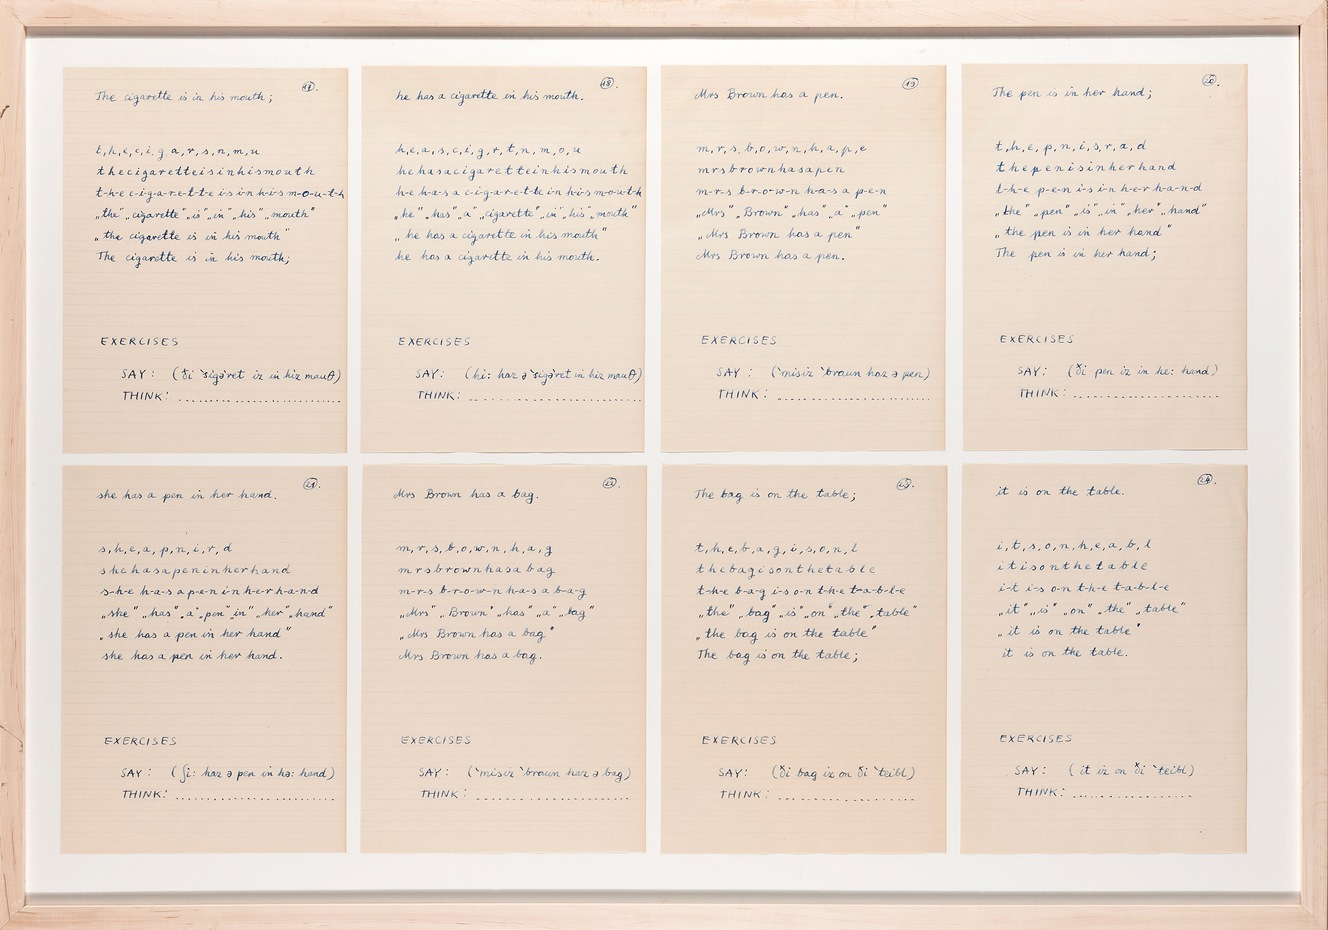 17.
The cigarette is in his mouth;
t,h,e,c,i,g,a,r,s,n,m,u
thecigaretteisinhismouth
t-h-e c-i-g-a-r-e-t-t-e i-s i-n h-i-s m-o-u-t-h
„the" „cigarette" „is" „in" „his" „mouth"
„the cigarette is in his mouth"
The cigarette is in his mouth;
EXERCISES
SAY: (ði ˋsigəret iz in hiz mauθ)
THINK: ..............................
18.
he has a cigarette in his mouth.
h,e,a,s,c,i,g,r,t,n,m,o,u
hehasacigaretteinhismouth
h-e h-a-s a c-i-g-a-r-e-t-t-e i-n h-i-s m-o-u-t-h
„he" „has" „a" „cigarette" „in" „his" „mouth"
„he has a cigarette in his mouth"
he has a cigarette in his mouth.
EXERCISES
SAY: (hi: haz ə ˋsigəret in hiz mauθ)
THINK: ..............................
19
Mrs Brown has a pen.
m,r,s,b,o,w,n,h,a,p,e
mrsbrownhasapen
m-r-s b-r-o-w-n h-a-s a p-e-n
„Mrs" „Brown" „has" „a" „pen"
„Mrs Brown has a pen"
Mrs Brown has a pen.
EXERCISES
SAY: (ˋmisiz ˋbraun haz ə pen)
THINK: ..........................
20.
The pen is in her hand;
t,h,e,p,n,i,s,r,a,d
thepenisinherhand
t-h-e p-e-n i-s i-n h-e-r h-a-n-d
„the" „pen" „is" „in" „her" „hand"
„the pen is in her hand"
The pen is in her hand;
EXERCISES
SAY: (ði pen iz in hə: hand)
THINK: ..........................
21.
she has a pen in her hand.
s,h,e,a,p,n,i,r,d
shehasapeninherhand
s-h-e h-a-s a p-e-n i-n h-e-r h-a-n-d
„she" „has" „a" „pen" „in" „her" „hand"
„she has a pen in her hand"
she has a pen in her hand.
EXERCISES
SAY: (ʃi: haz ə pen in hə: hand)
THINK: ............................
22.
Mrs Brown has a bag.
m,r,s,b,o,w,n,h,a,g
mrsbrownhasabag
m-r-s b-r-o-w-n h-a-s a b-a-g
„Mrs" „Brown" „has" „a" „bag"
„Mrs Brown has a bag"
Mrs Brown has a bag.
EXERCISES
SAY: (ˋmisiz ˋbraun haz ə bag)
THINK: ............................
23.
The bag is on the table;
t,h,e,b,a,g,i,s,o,n,l
thebagisonthetable
t-h-e b-a-g i-s o-n t-h-e t-a-b-l-e
„the" „bag" „is" „on" „the" „table"
„the bag is on the table"
The bag is on the table;
EXERCISES
SAY: (ði bag iz on ði ˋteibl)
THINK: ........................
24.
it is on the table.
i,t,s,o,n,h,e,a,b,l
itisonthetable
i-t i-s o-n t-h-e t-a-b-l-e
„it" „is" „on" „the" „table"
„it is on the table"
it is on the table.
EXERCISES
SAY: (it iz on ði ˋteibl)
THINK: .....................